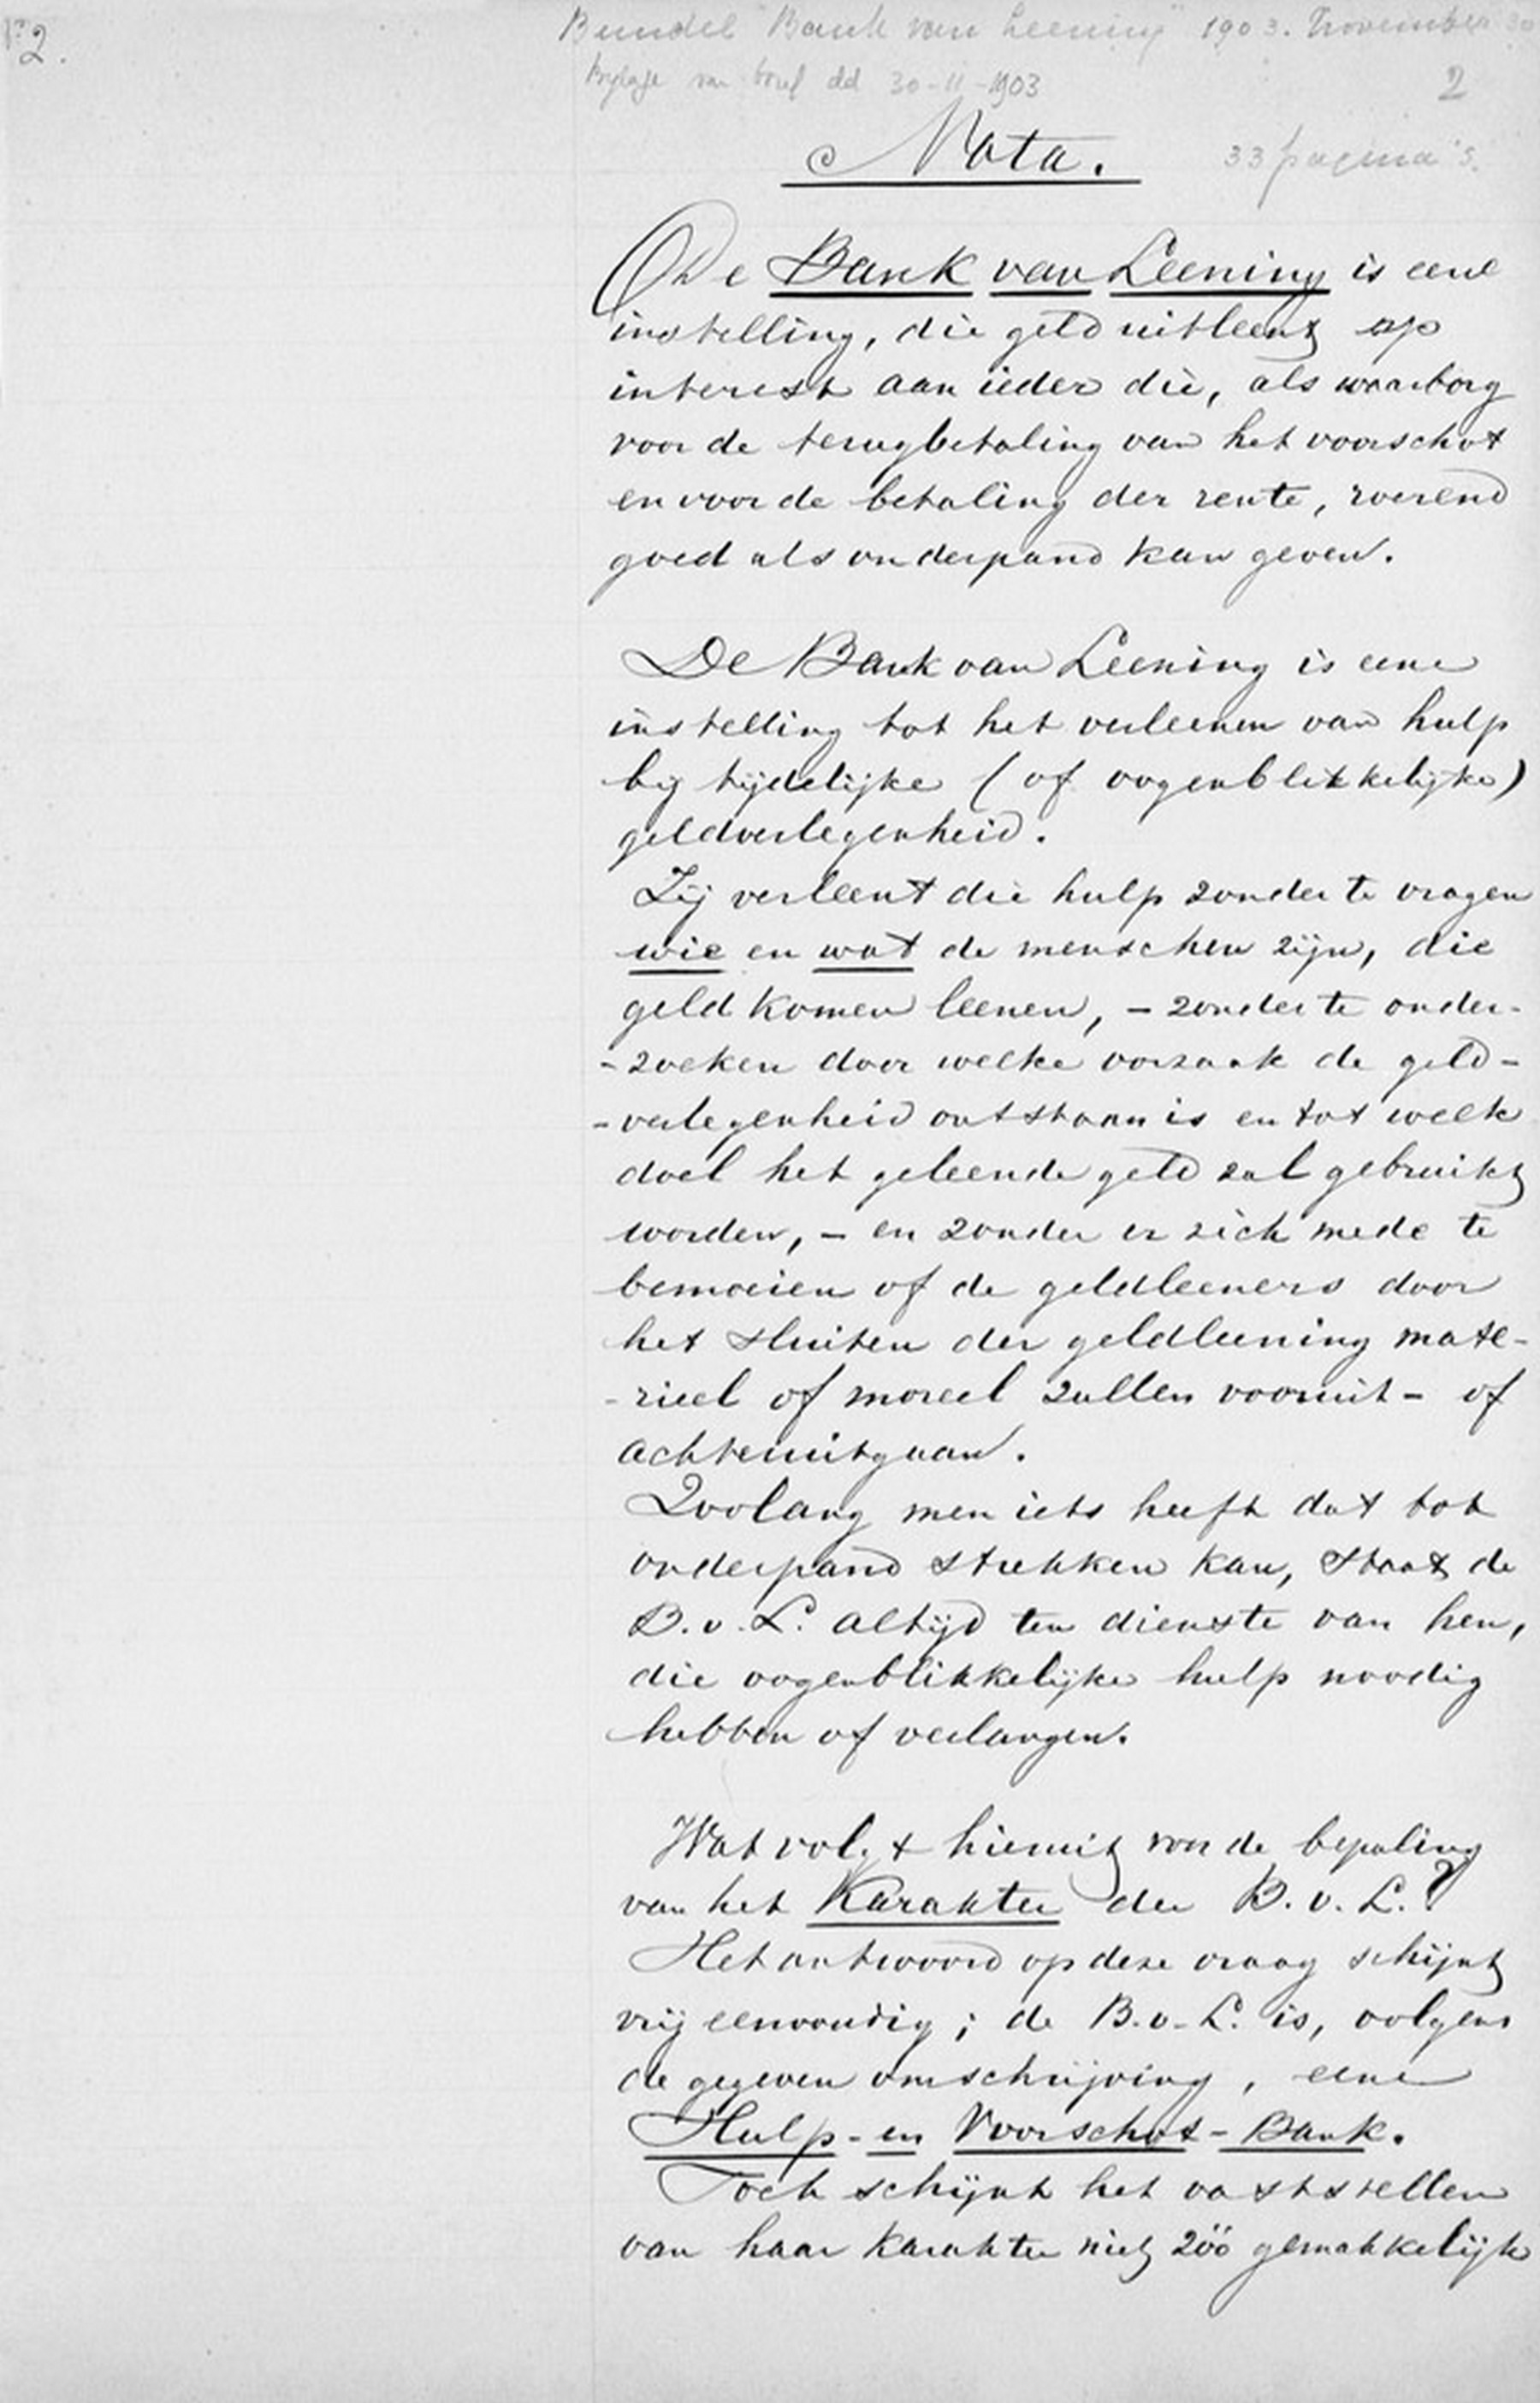 No 2.
Bundel "Bank van Leening" 1903. November 30
Bylage van brief dd 30-11-1903
2
Nota.
33 pagina's.
De Bank van Leening is eene
instelling, die geld uitleent op
interest aan ieder die, als waarborg
voor de terugbetaling van het voorschot
en voor de betaling der rente, roerend
goed als onderpand kan geven.
De Bank van Leening is eene
instelling tot het verleenen van hulp
bij tijdelijke (of oogenblikkelijke)
geldverlegenheid.
Zij verleent die hulp zonder te vragen
wie en wat de menschen zijn, die
geld komen leenen, - zonder te onder-
-zoeken door welke oorzaak de geld-
-verlegenheid ontstaan is en tot welk
doel het geleende geld zal gebruikt
worden, - en zonder er zich mede te
bemoeien of de geldleeners door
het sluiten der geldleening mate-
-rieel of moreel zullen vooruit- of
achteruitgaan.
Zoolang men iets heeft dat tot
onderpand strekken kan, staat de
B. v. L. altijd ten dienste van hen,
die oogenblikkelijke hulp noodig
hebben of verlangen.
Wat volgt hieruit voor de bepaling
van het Karakter der B. v. L.?
Het antwoord op deze vraag schijnt
vrij eenvoudig; de B. v. L. is, volgens
de gegeven omschrijving, eene
Hulp- en Voorschot-Bank.
Toch schijnt het vaststellen
van haar karakter niet zóó gemakkelijk